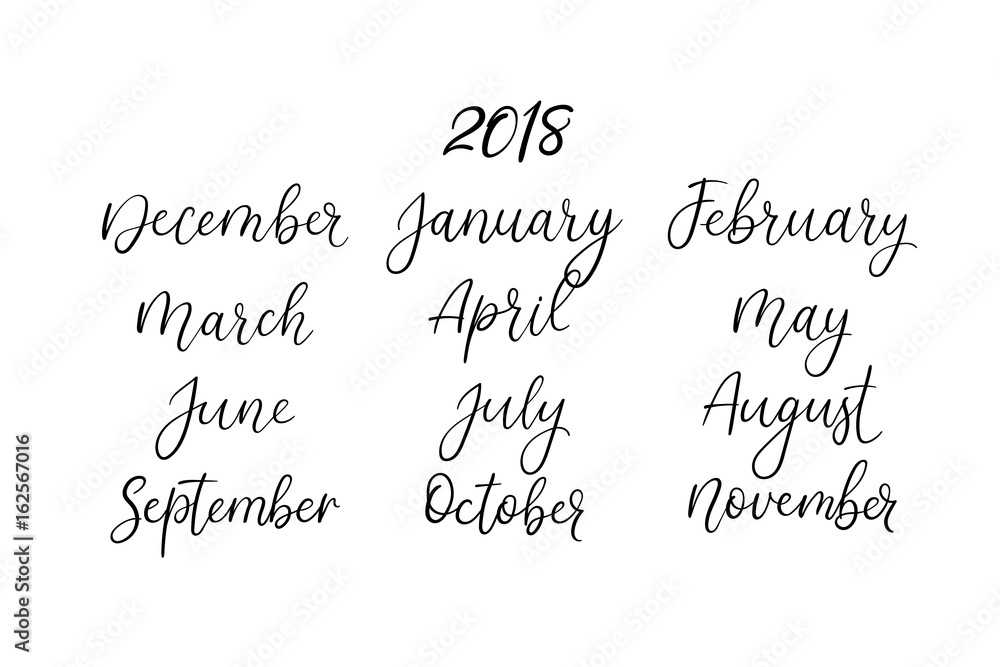 2018
December January February
March April May
June July August
September October November
Adobe Stock | #162567016